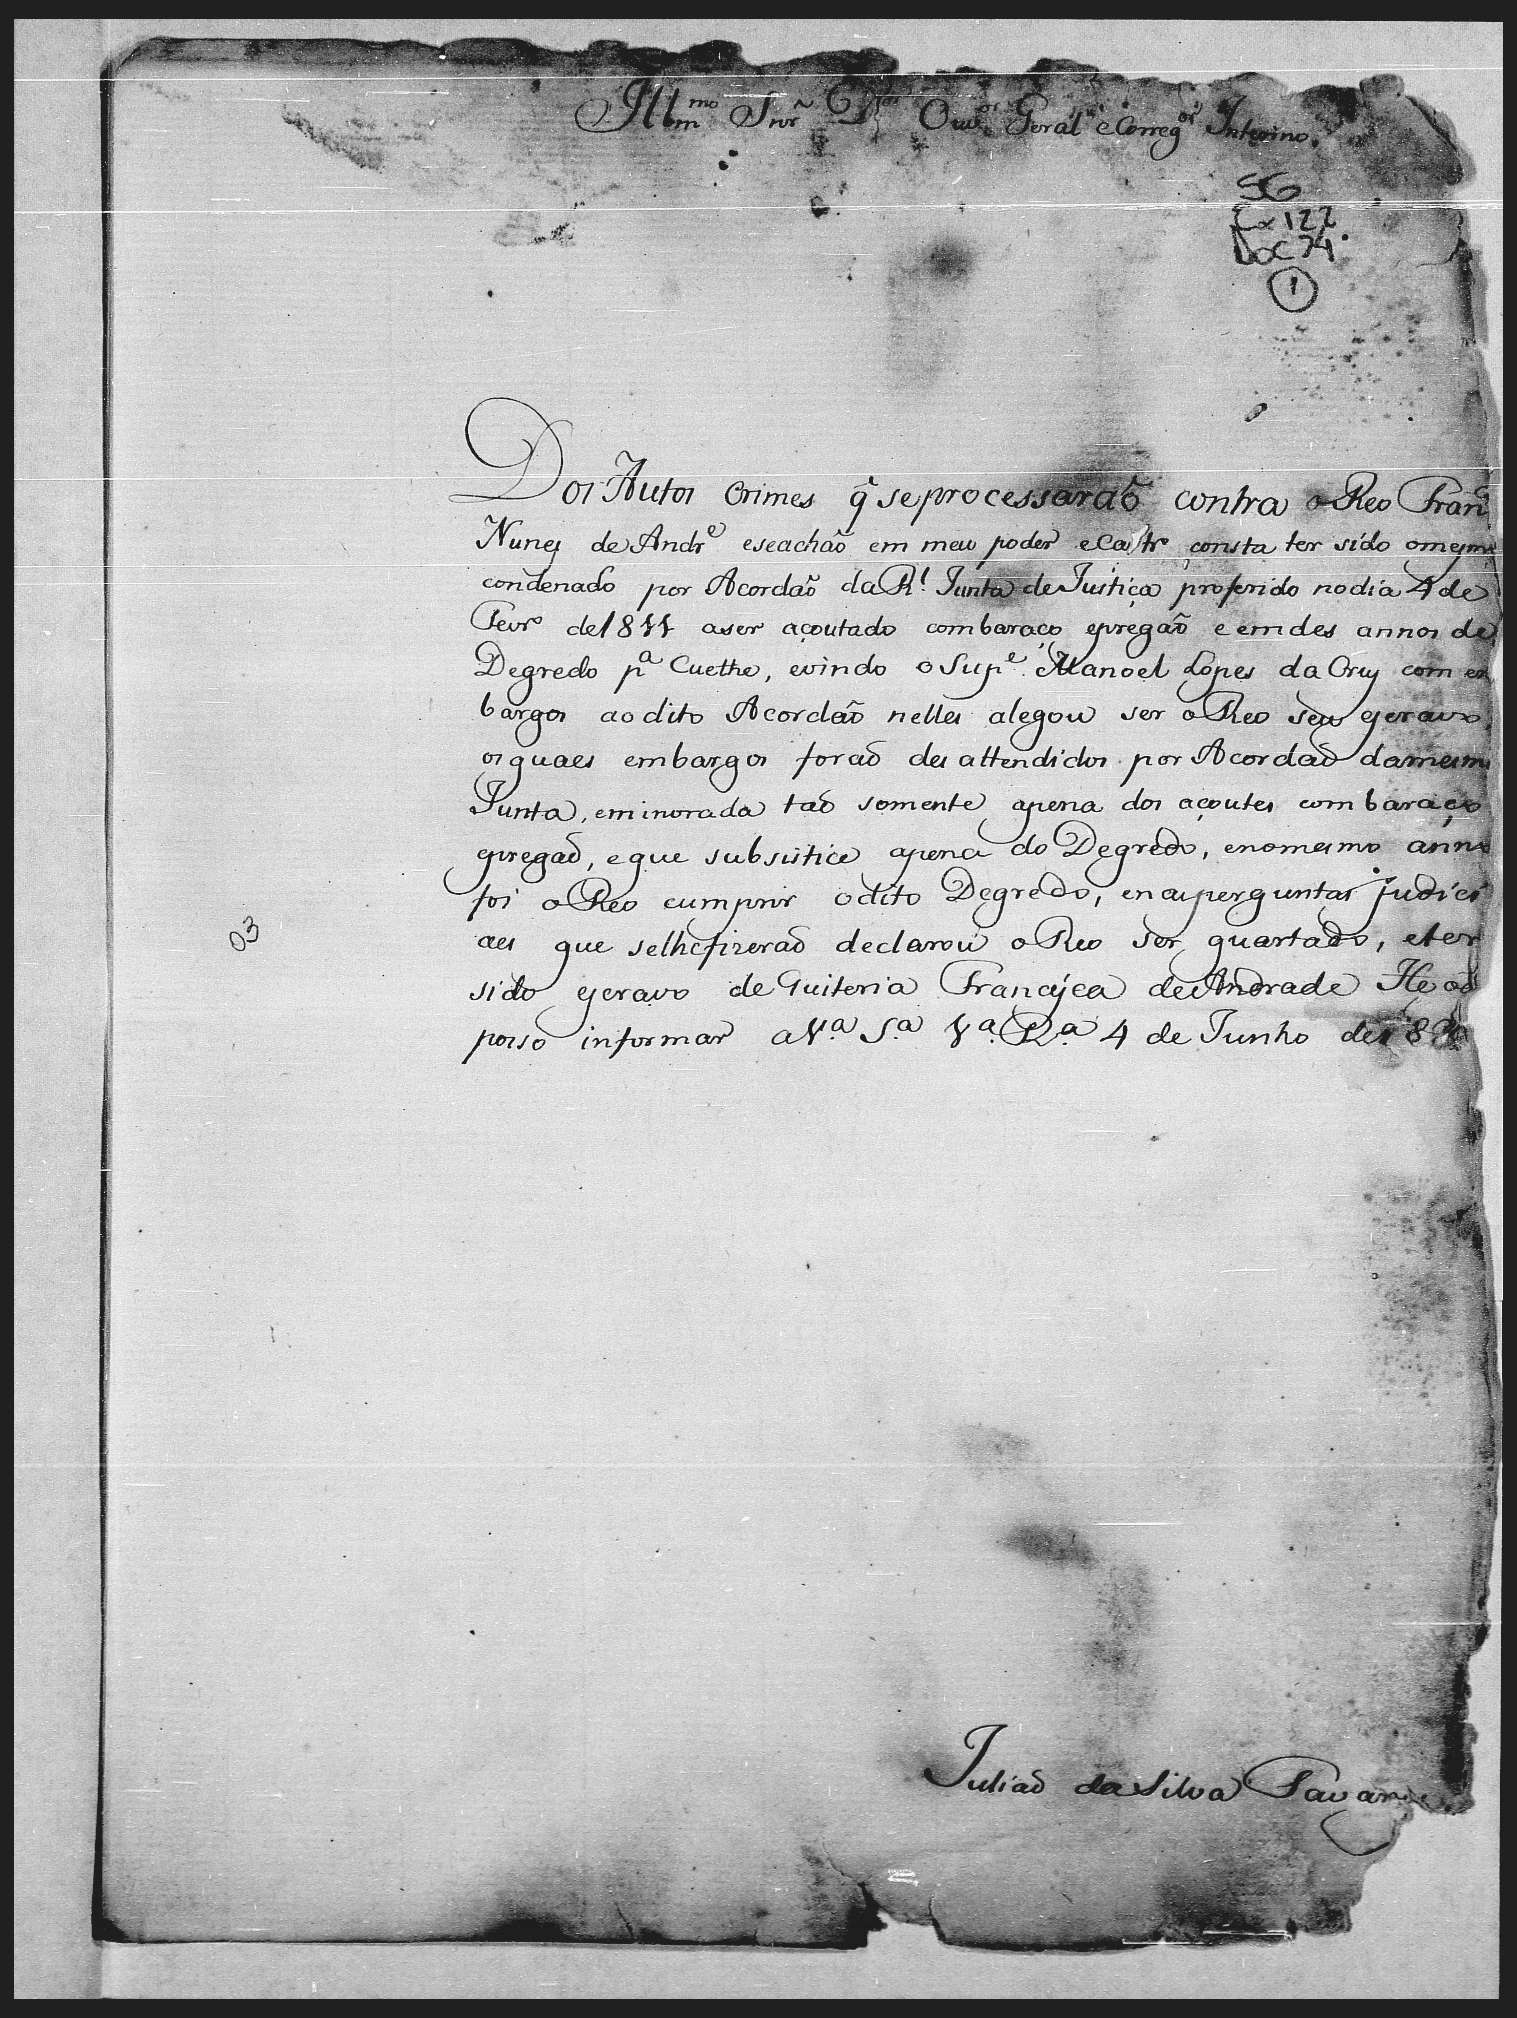 Illmo Snr Dr Ouvor Geral e Corregor Interino.
SG
Cx 122
Doc 74
1
Dos Autos Crimes q̃ se processaraõ contra o Reo Franco
Nunes de Andre e se achão em meu poder e Cartro consta ter sido o mesmo
condenado por Acordaõ da Rl Junta de Justiça proferido no dia 4 de
Fevro de 1811 a ser açoutado com baraço e pregaõ e em des annos de
Degredo pa Cuethe, e vindo o Supe Manoel Lopes da Crus com em
bargos ao dito Acordaõ nelles alegou ser o Reo seu escravo,
os quaes embargos foraõ desattendidos por Acordaõ da mesma
Junta, e minorada taõ somente a pena dos açoutes com baraço
e pregaõ, e que subsistice a pena do Degredo, e no mesmo anno
foi o Reo cumprir o dito Degredo, e nas perguntas judici
aes que se lhe fizeraõ declarou o Reo ser quartado, e ter
03
sido escravo de Quiteria Francisca de Andrade He o q̃
posso informar a Va Sa Va Ra 4 de Junho de
Juliaõ da Silva Tavares